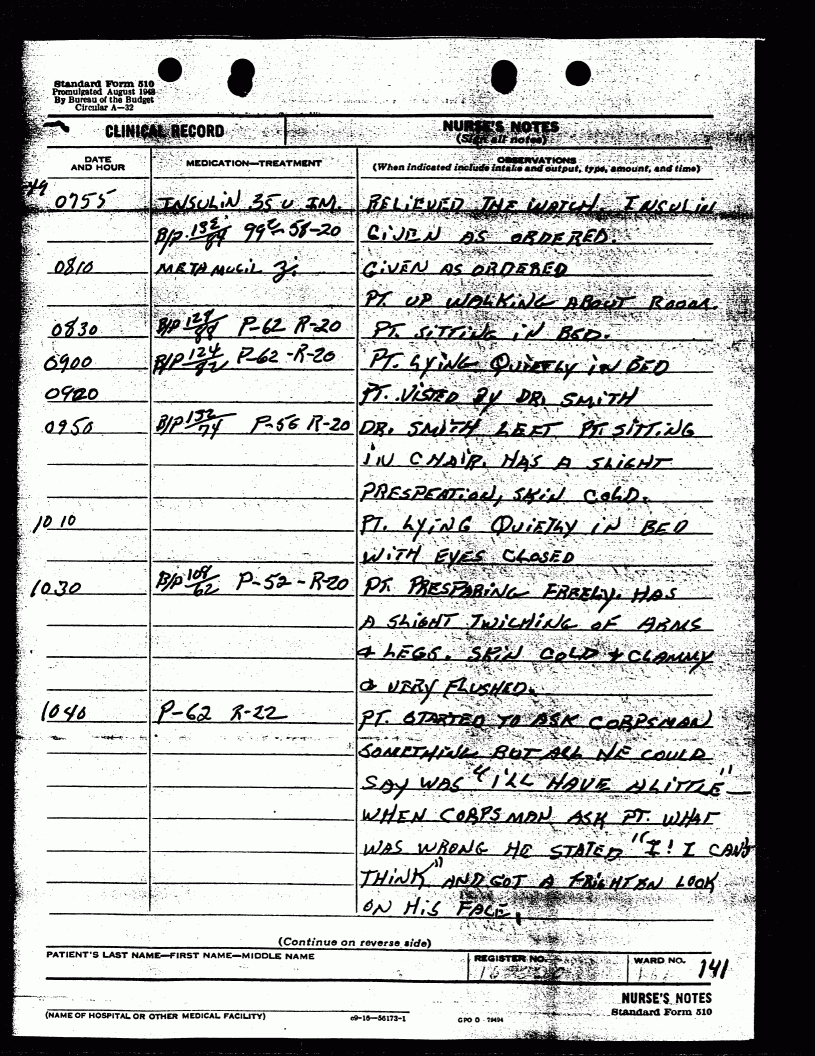 Standard Form 510
Promulgated August 1948
By Bureau of the Budget
Circular A—32
CLINICAL RECORD
NURSE'S NOTES
(Sign all notes)
DATE AND HOUR
MEDICATION—TREATMENT
OBSERVATIONS
(When indicated include intake and output, type, amount, and time)
0755 INSULIN 35 U IM. RELIEVED THE WATCH. INSULIN
B/P 132/84 99² 58-20 GIVEN AS ORDERED.
0810 METAMUCIL GIVEN AS ORDERED
PT. UP WALKING ABOUT ROOM.
0830 B/P 128/88 P-62 R-20 PT. SITTING IN BED.
0900 B/P 124/82 P-62 -R-20 PT. LYING QUIETLY IN BED
0920 PT. VISTED BY DR. SMITH
0950 B/P 132/74 P-56 R-20 DR. SMITH LEFT PT SITTING
IN CHAIR. HAS A SLIGHT
PRESPEATION, SKIN COLD.
1010 PT. LYING QUIETLY IN BED
WITH EYES CLOSED
1030 B/P 108/62 P-52-R-20 PT. PRESPARING FREELY. HAS
A SLIGHT TWICHING OF ARMS
& LEGS. SKIN COLD & CLAMMY
& VERY FLUSHED.
1040 P-62 R-22 PT. STARTED TO ASK CORPSMAN
SOMETHING BUT ALL HE COULD
SAY WAS "I'LL HAVE A LITTLE"—
WHEN CORPSMAN ASK PT. WHAT
WAS WRONG HE STATED "I! I CAN'T
THINK" AND GOT A FRIGHTEN LOOK
ON HIS FACE.
(Continue on reverse side)
PATIENT'S LAST NAME—FIRST NAME—MIDDLE NAME
REGISTER NO.
WARD NO.
141
NURSE'S NOTES
Standard Form 510
(NAME OF HOSPITAL OR OTHER MEDICAL FACILITY)
c9—16—56173-1
GPO O 79494